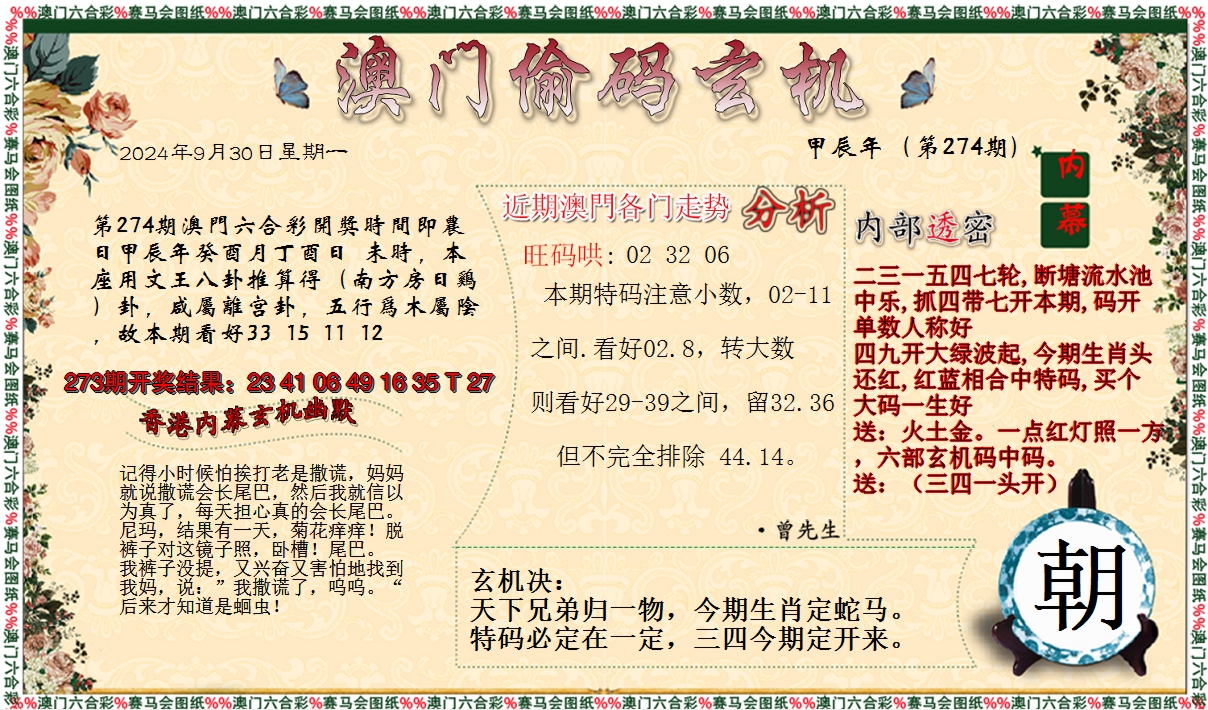 %%澳门六合彩%赛马会图纸%%澳门六合彩%赛马会图纸%%澳门六合彩%赛马会图纸%%澳门六合彩%赛马会图纸%%澳门六合彩%赛马会图纸%%澳门六合彩%赛马会图纸%%
澳门偷码玄机
2024年9月30日星期一
甲辰年（第274期）
第274期澳門六合彩開獎時間即農
日甲辰年癸酉月丁酉日 未時，本
座用文王八卦推算得（南方房日鷄
）卦，咸屬離宫卦，五行爲木屬陰
，故本期看好33 15 11 12
273期开奖结果：23 41 06 49 16 35 T 27
香港内幕玄机幽默
记得小时候怕挨打老是撒谎，妈妈
就说撒谎会长尾巴，然后我就信以
为真了，每天担心真的会长尾巴。
尼玛，结果有一天，菊花痒痒！脱
裤子对这镜子照，卧槽！尾巴。
我裤子没提，又兴奋又害怕地找到
我妈，说：”我撒谎了，呜呜。“
后来才知道是蛔虫！
近期澳門各门走势 分析
旺码哄: 02 32 06
本期特码注意小数，02-11
之间.看好02.8，转大数
则看好29-39之间，留32.36
但不完全排除 44.14。
·曾先生
内幕
内部透密
二三一五四七轮,断塘流水池
中乐,抓四带七开本期,码开
单数人称好
四九开大绿波起,今期生肖头
还红,红蓝相合中特码,买个
大码一生好
送：火土金。一点红灯照一方
，六部玄机码中码。
送：（三四一头开）
玄机决：
天下兄弟归一物，今期生肖定蛇马。
特码必定在一定，三四今期定开来。
朝
%%澳门六合彩%赛马会图纸%%澳门六合彩%赛马会图纸%%澳门六合彩%赛马会图纸%%澳门六合彩%赛马会图纸%%澳门六合彩%赛马会图纸%%澳门六合彩%赛马会图纸%%